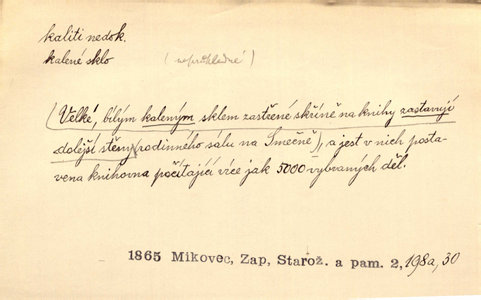 kaliti nedok.
kalené sklo (neprůhledné)
(Velké, bílým kaleným sklem zastřené skříně na knihy zastavují
dolejší stěny (rodinného sálu na Smečně), a jest v nich posta-
vena knihovna počítající více jak 5000 vybraných děl.
1865 Mikovec, Zap, Starož. a pam. 2, 198a, 30